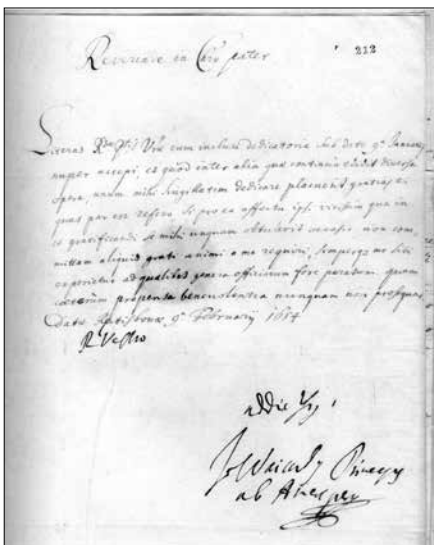 Reverende in Chro pater
212
Literas Rdae Ptis Vrae cum inclusa dedicatoria sub dato 9a Januarij
nuper accepi, ex quod inter alia quae continuo edidit diversa
opera, unum mihi singillatim dedicare placuerit gratias ei
quas par est refero
se mihi unquam obtulerit occasio non com
mittam aliquid grati animi a me requiri, semperque me sibi
ad qualibet genera officiorum fore paratum, quem
propensa benevolentia nunquam non
Datae Ratisbonae 9a Februarij 1654
R. Vestro
addictus
Jo Waicardus Princeps
ab Auersperg